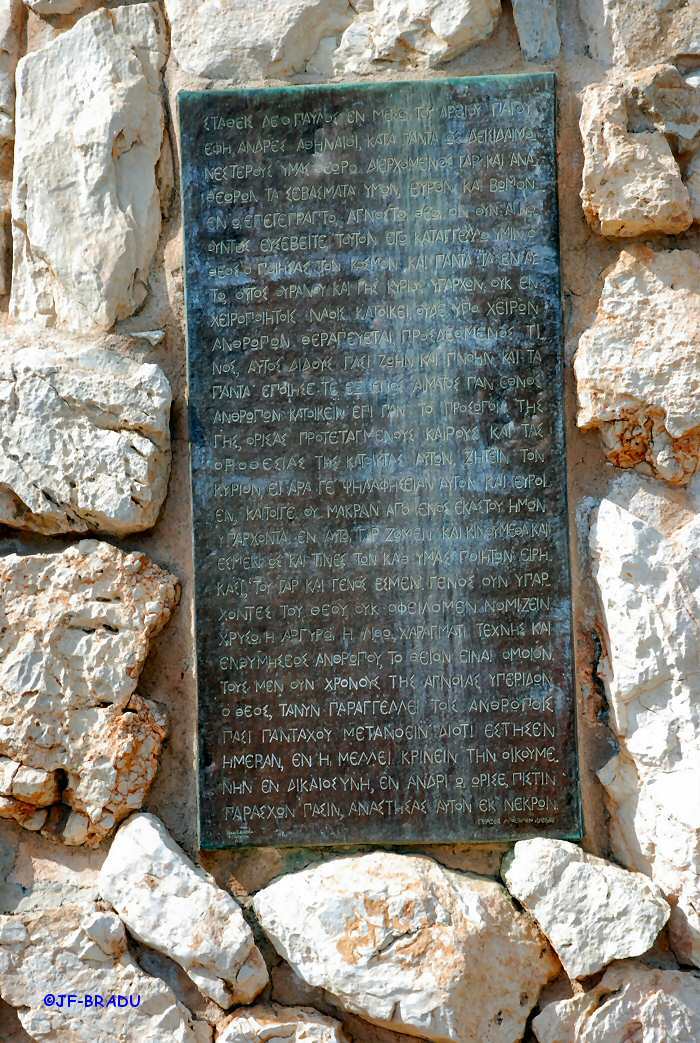 ΣΤΑΘΕΙΣ ΔΕ Ο ΠΑΥΛΟΣ ΕΝ ΜΕΣΩ ΤΟΥ ΑΡΕΙΟΥ ΠΑΓΟΥ
ΕΦΗ, ΑΝΔΡΕΣ ΑΘΗΝΑΙΟΙ, ΚΑΤΑ ΠΑΝΤΑ ΩΣ ΔΕΙΣΙΔΑΙΜΟ
ΝΕΣΤΕΡΟΥΣ ΥΜΑΣ ΘΕΩΡΩ. ΔΙΕΡΧΟΜΕΝΟΣ ΓΑΡ ΚΑΙ ΑΝΑ
ΘΕΩΡΩΝ ΤΑ ΣΕΒΑΣΜΑΤΑ ΥΜΩΝ, ΕΥΡΟΝ ΚΑΙ ΒΩΜΟΝ
ΕΝ Ω ΕΠΕΓΕΓΡΑΠΤΟ, ΑΓΝΩΣΤΩ ΘΕΩ. ΟΝ ΟΥΝ ΑΓΝΟ
ΟΥΝΤΕΣ ΕΥΣΕΒΕΙΤΕ ΤΟΥΤΟΝ ΕΓΩ ΚΑΤΑΓΓΕΛΛΩ ΥΜΙΝ. Ο
ΘΕΟΣ Ο ΠΟΙΗΣΑΣ ΤΟΝ ΚΟΣΜΟΝ ΚΑΙ ΠΑΝΤΑ ΤΑ ΕΝ ΑΥ
ΤΩ, ΟΥΤΟΣ ΟΥΡΑΝΟΥ ΚΑΙ ΓΗΣ ΚΥΡΙΟΣ ΥΠΑΡΧΩΝ, ΟΥΚ ΕΝ
ΧΕΙΡΟΠΟΙΗΤΟΙΣ ΝΑΟΙΣ ΚΑΤΟΙΚΕΙ ΟΥΔΕ ΥΠΟ ΧΕΙΡΩΝ
ΑΝΘΡΩΠΩΝ ΘΕΡΑΠΕΥΕΤΑΙ ΠΡΟΣΔΕΟΜΕΝΟΣ ΤΙ
ΝΟΣ, ΑΥΤΟΣ ΔΙΔΟΥΣ ΠΑΣΙ ΖΩΗΝ ΚΑΙ ΠΝΟΗΝ ΚΑΙ ΤΑ
ΠΑΝΤΑ ΕΠΟΙΗΣΕ ΤΕ ΕΞ ΕΝΟΣ ΑΙΜΑΤΟΣ ΠΑΝ ΕΘΝΟΣ
ΑΝΘΡΩΠΩΝ ΚΑΤΟΙΚΕΙΝ ΕΠΙ ΠΑΝ ΤΟ ΠΡΟΣΩΠΟΝ ΤΗΣ
ΓΗΣ, ΟΡΙΣΑΣ ΠΡΟΤΕΤΑΓΜΕΝΟΥΣ ΚΑΙΡΟΥΣ ΚΑΙ ΤΑΣ
ΟΡΟΘΕΣΙΑΣ ΤΗΣ ΚΑΤΟΙΚΙΑΣ ΑΥΤΩΝ ΖΗΤΕΙΝ ΤΟΝ
ΚΥΡΙΟΝ, ΕΙ ΑΡΑ ΓΕ ΨΗΛΑΦΗΣΕΙΑΝ ΑΥΤΟΝ ΚΑΙ ΕΥΡΟΙ
ΕΝ, ΚΑΙΤΟΙΓΕ ΟΥ ΜΑΚΡΑΝ ΑΠΟ ΕΝΟΣ ΕΚΑΣΤΟΥ ΗΜΩΝ
ΥΠΑΡΧΟΝΤΑ. ΕΝ ΑΥΤΩ ΓΑΡ ΖΩΜΕΝ ΚΑΙ ΚΙΝΟΥΜΕΘΑ ΚΑΙ
ΕΣΜΕΝ, ΩΣ ΚΑΙ ΤΙΝΕΣ ΤΩΝ ΚΑΘ ΥΜΑΣ ΠΟΙΗΤΩΝ ΕΙΡΗ
ΚΑΣΙ, ΤΟΥ ΓΑΡ ΚΑΙ ΓΕΝΟΣ ΕΣΜΕΝ. ΓΕΝΟΣ ΟΥΝ ΥΠΑΡ
ΧΟΝΤΕΣ ΤΟΥ ΘΕΟΥ ΟΥΚ ΟΦΕΙΛΟΜΕΝ ΝΟΜΙΖΕΙΝ
ΧΡΥΣΩ Η ΑΡΓΥΡΩ Η ΛΙΘΩ, ΧΑΡΑΓΜΑΤΙ ΤΕΧΝΗΣ ΚΑΙ
ΕΝΘΥΜΗΣΕΩΣ ΑΝΘΡΩΠΟΥ, ΤΟ ΘΕΙΟΝ ΕΙΝΑΙ ΟΜΟΙΟΝ.
ΤΟΥΣ ΜΕΝ ΟΥΝ ΧΡΟΝΟΥΣ ΤΗΣ ΑΓΝΟΙΑΣ ΥΠΕΡΙΔΩΝ
Ο ΘΕΟΣ, ΤΑΝΥΝ ΠΑΡΑΓΓΕΛΛΕΙ ΤΟΙΣ ΑΝΘΡΩΠΟΙΣ
ΠΑΣΙ ΠΑΝΤΑΧΟΥ ΜΕΤΑΝΟΕΙΝ ΔΙΟΤΙ ΕΣΤΗΣΕΝ
ΗΜΕΡΑΝ, ΕΝ Η ΜΕΛΛΕΙ ΚΡΙΝΕΙΝ ΤΗΝ ΟΙΚΟΥΜΕ
ΝΗΝ ΕΝ ΔΙΚΑΙΟΣΥΝΗ, ΕΝ ΑΝΔΡΙ Ω ΩΡΙΣΕ, ΠΙΣΤΙΝ
ΠΑΡΑΣΧΩΝ ΠΑΣΙΝ, ΑΝΑΣΤΗΣΑΣ ΑΥΤΟΝ ΕΚ ΝΕΚΡΩΝ.
©JF-BRADU